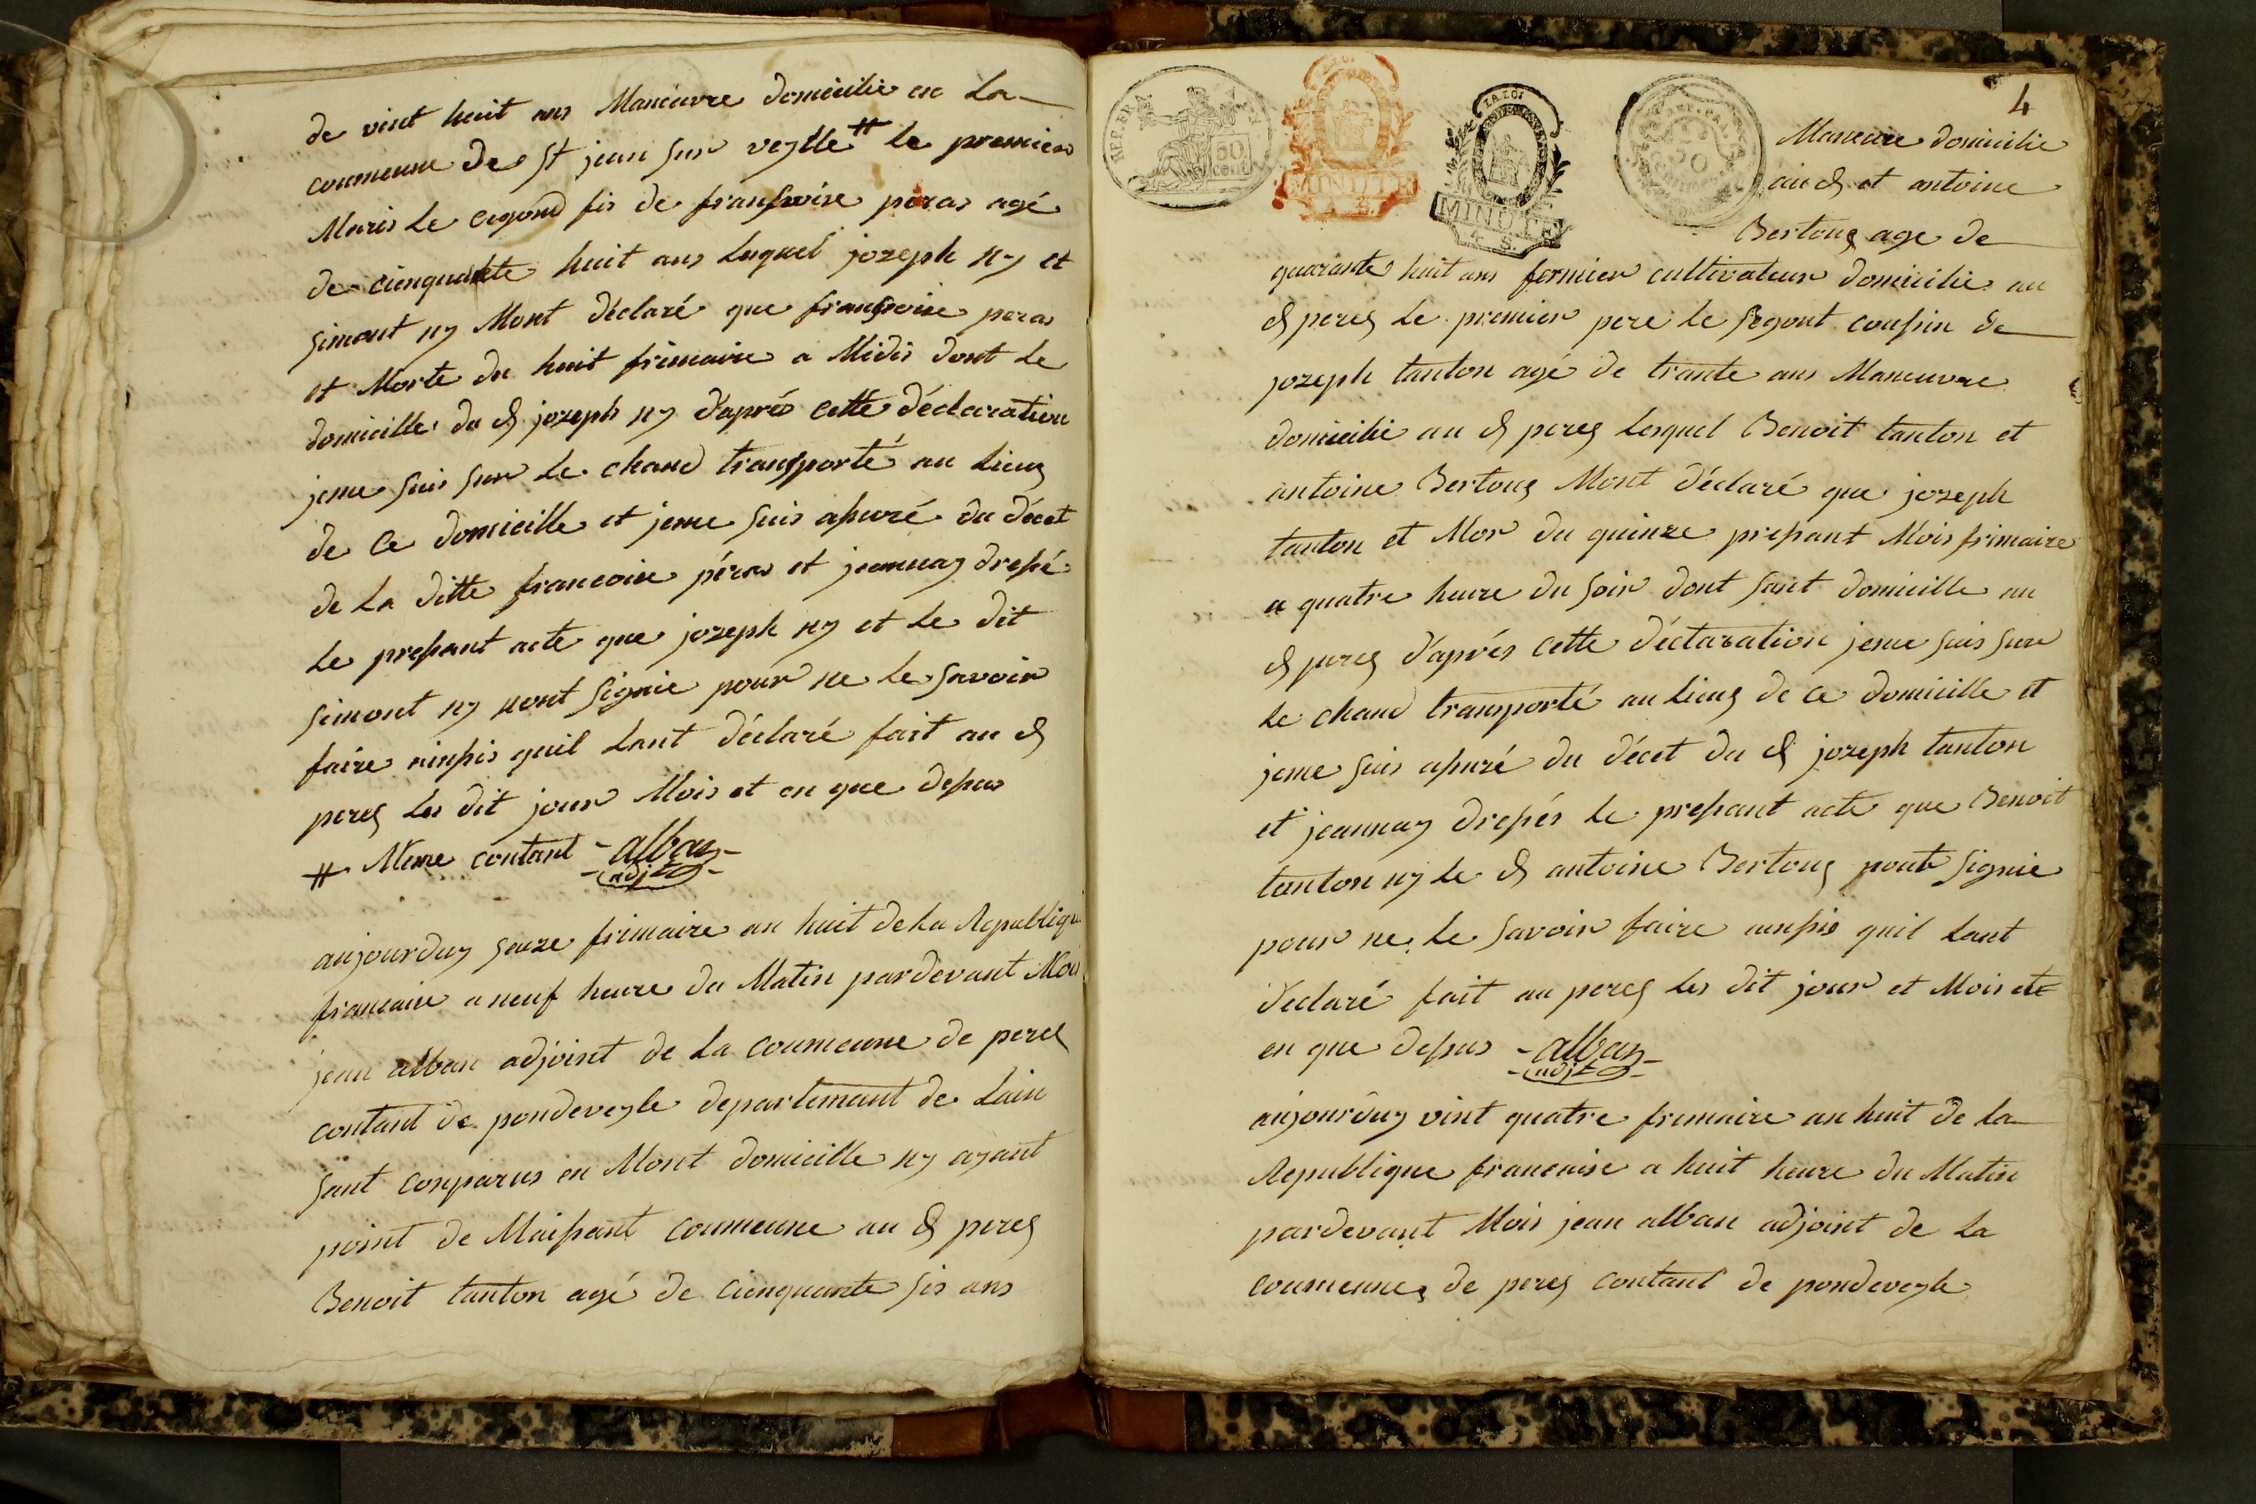 de vint huit ans Maneuvre domicilie en La
coumeune de st jean sur veylle # le premier
Maris le cegond fis de fransoise peras agé
de cienquante huit ans lequel jozeph ny et
simont ny Mont déclaré que fransoise peras
et Morte du huit frimaire a Midis dont le
domicille du d jozeph ny d'aprés cette déclaration
jeme suis sur le chand transporté au lieuz
de ce domicille et jeme suis assuré du décet
de la ditte francoise péras et jeannay dressé
le pressant acte que jozeph ny et le dit
simont ny nont signie pour ne le savoir
faire ainssis quil lant déclaré fait au d
perez les dit jour Mois et en que dessus
# Meme contant - alban -
- adjt -
aujourduy seuze frimaire an huit de la Republiqu
francaise a neuf heure du Matin pardevant Moi
jean alban adjoint de la coumeune de perez
contant de pondeveyle departemant de lain
sant conparus en Mont domicille ny ayant
point de Maissant coumeune au d perez
Benoit tanton agé de cienquante sis ans
REP. FRA.
50
cent
LA LOI
MINUTE
4 S.
MINUTE
4 S.
50
4
Maneuvre domicilie
au d et antoine
Bertouz age de
quarante huit ans fermier cultivateur domicilie au
d perez le premier pere le segont coussin de
jozeph tanton agé de trante ans Maneuvre
domicilie au d perez lesquel Benoit tanton et
antoine Bertouz Mont déclaré que jozeph
tanton et Mor du quinze pressant Mois frimaire
a quatre heure du soir dont sant domicille au
d perez d'aprés cette déclaration jeme suis sur
le chand transporté au lieuz de ce domicille et
jeme suis assuré du décet du d jozeph tanton
et jeannay dressés le pressant acte que Benoit
tanton ny le d antoine Bertouz nont signie
pour ne le savoir faire ainssis quil lant
déclaré fait au perez les dit jour et Mois et
en que dessus - alban -
- adjt -
aujourduy vint quatre frimaire an huit de la
Republique francaise a huit heure du Matin
pardevant Mois jean alban adjoint de la
coumeune de perez contant de pondeveyle